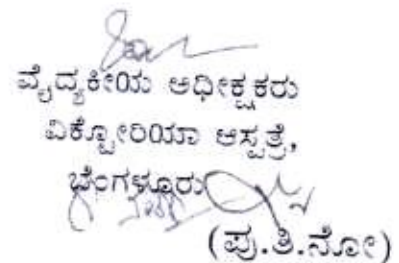 ವೈದ್ಯಕೀಯ ಅಧೀಕ್ಷಕರು
ವಿಕ್ಟೋರಿಯಾ ಆಸ್ಪತ್ರೆ,
ಬೆಂಗಳೂರು
(ಪು.ತಿ.ನೋ)